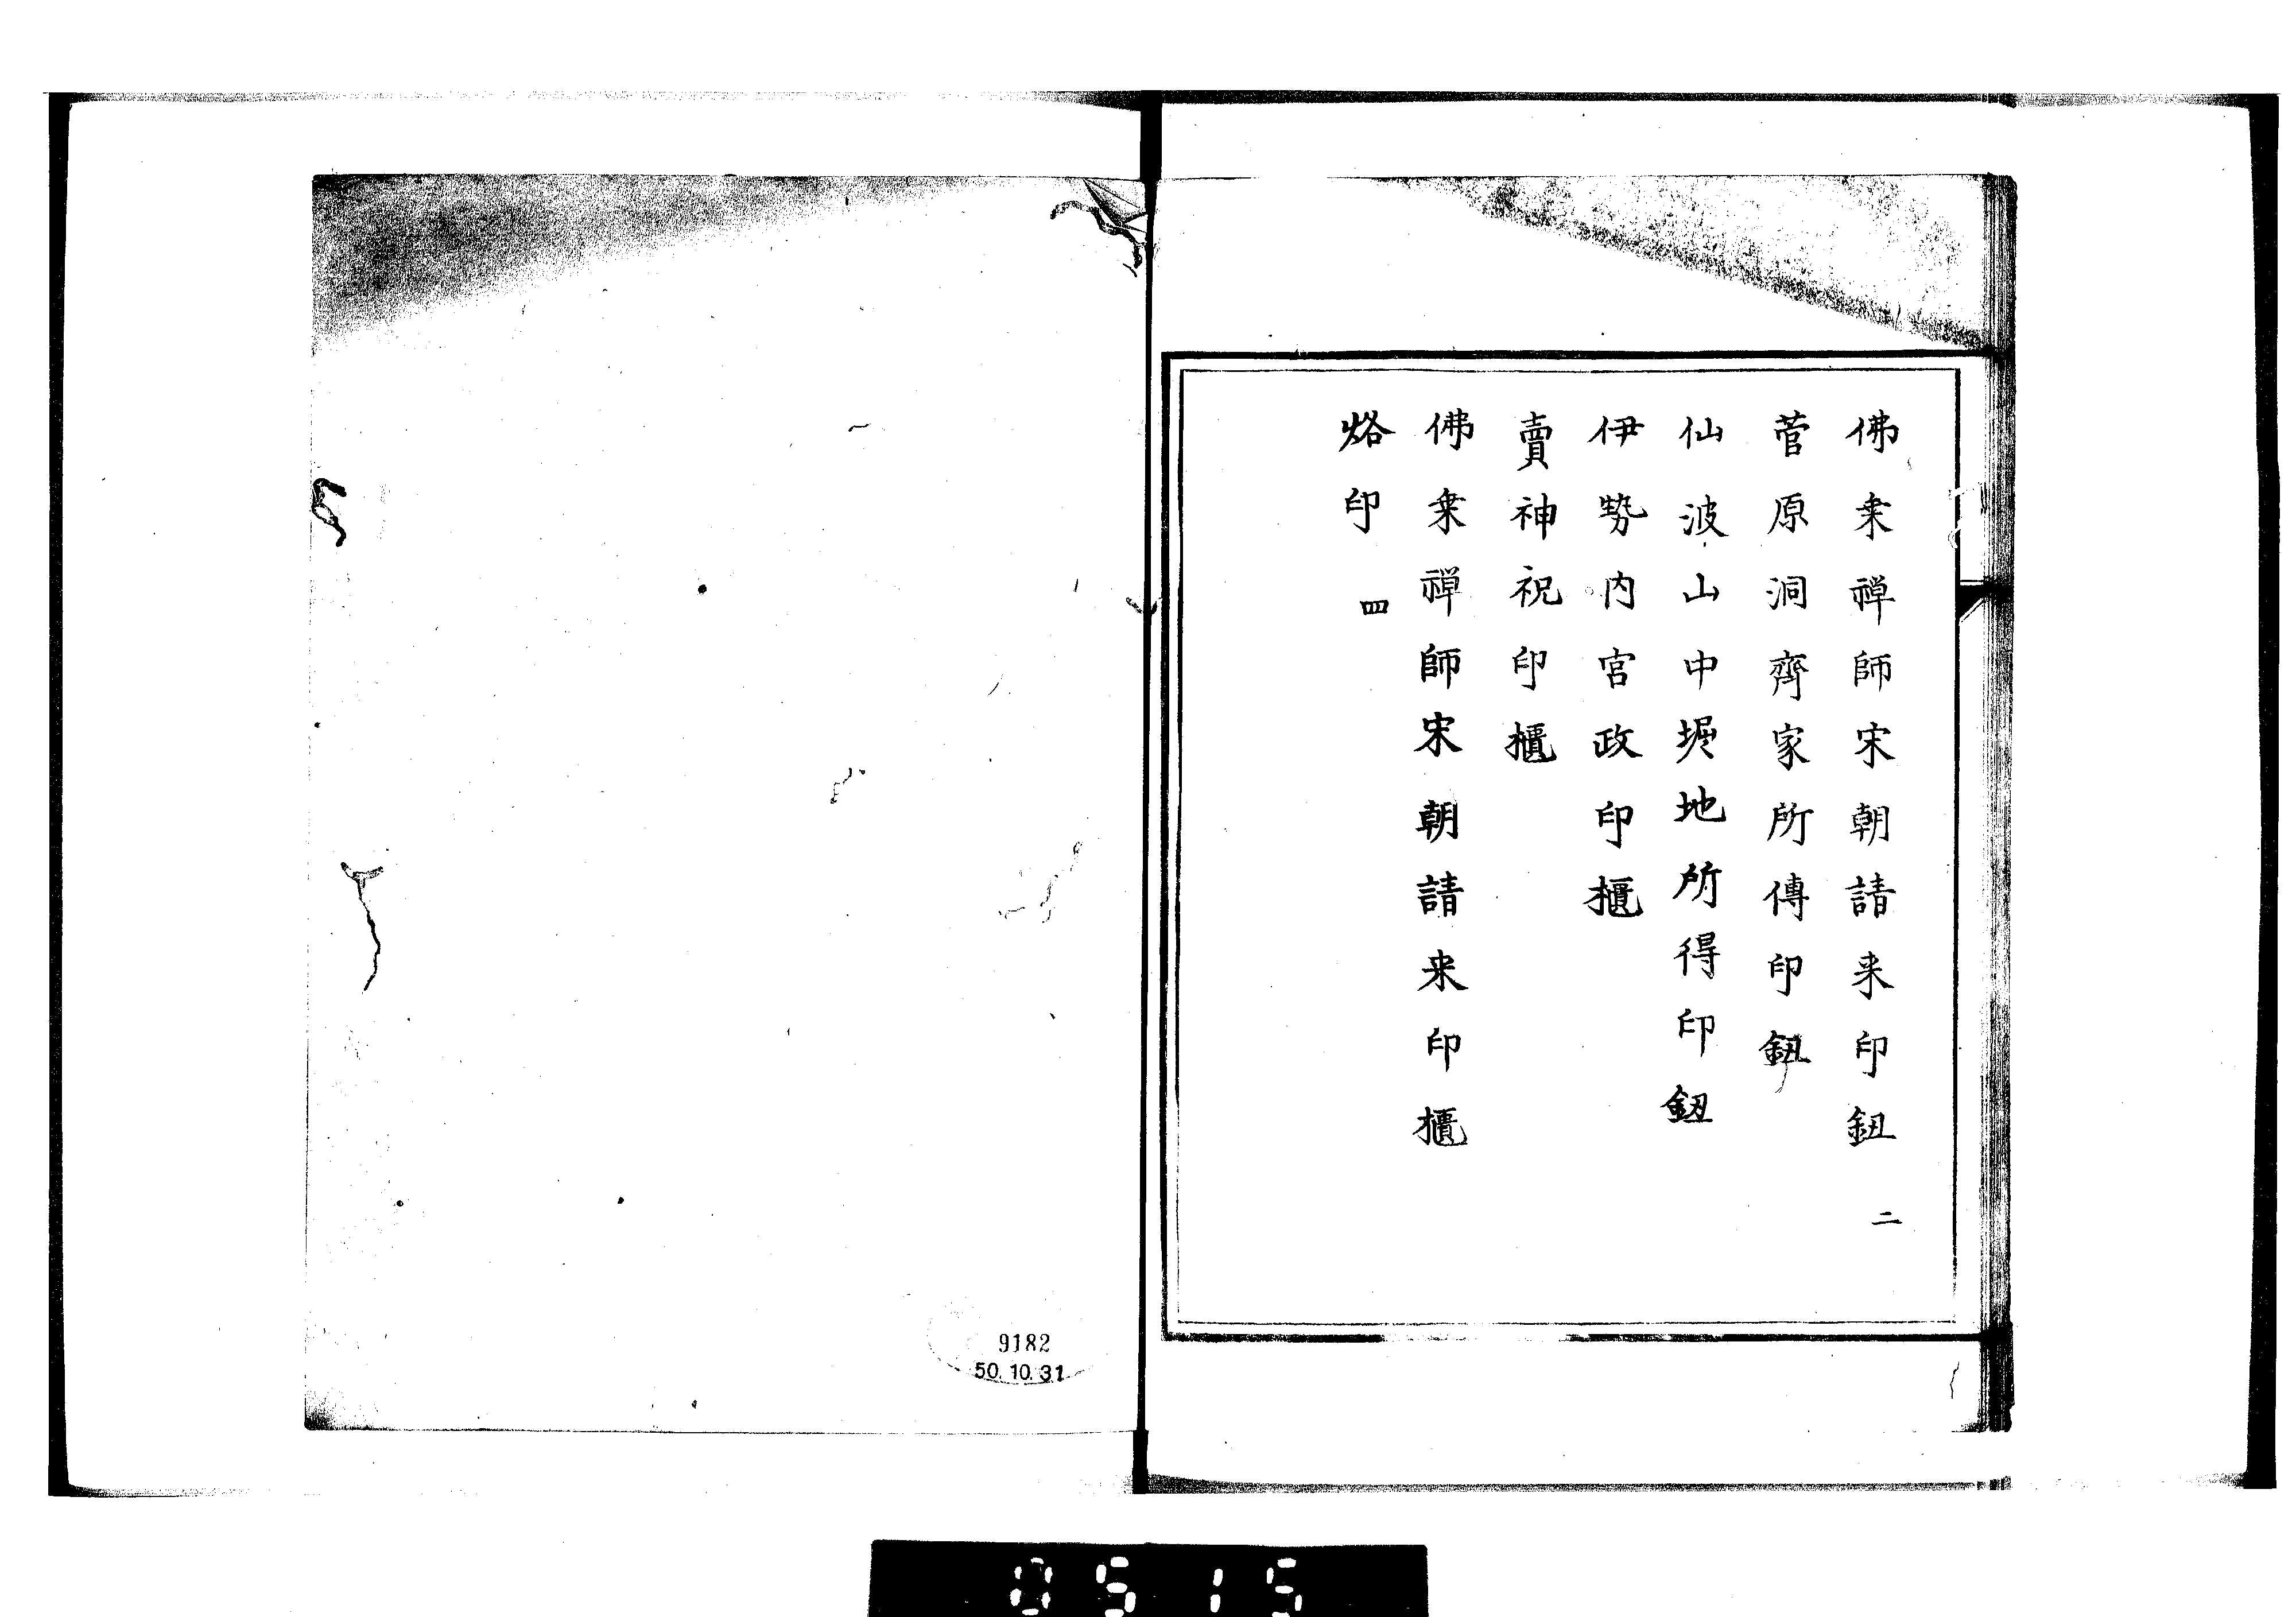 佛乗禅師宋朝請来印鈕 二
菅原洞齊家所傳印鈕
仙波山中堀地所得印鈕
伊勢内宮政印櫃
賣神祝印櫃
佛乗禅師宋朝請来印櫃
烙印 四
9182
50.10.31
0515